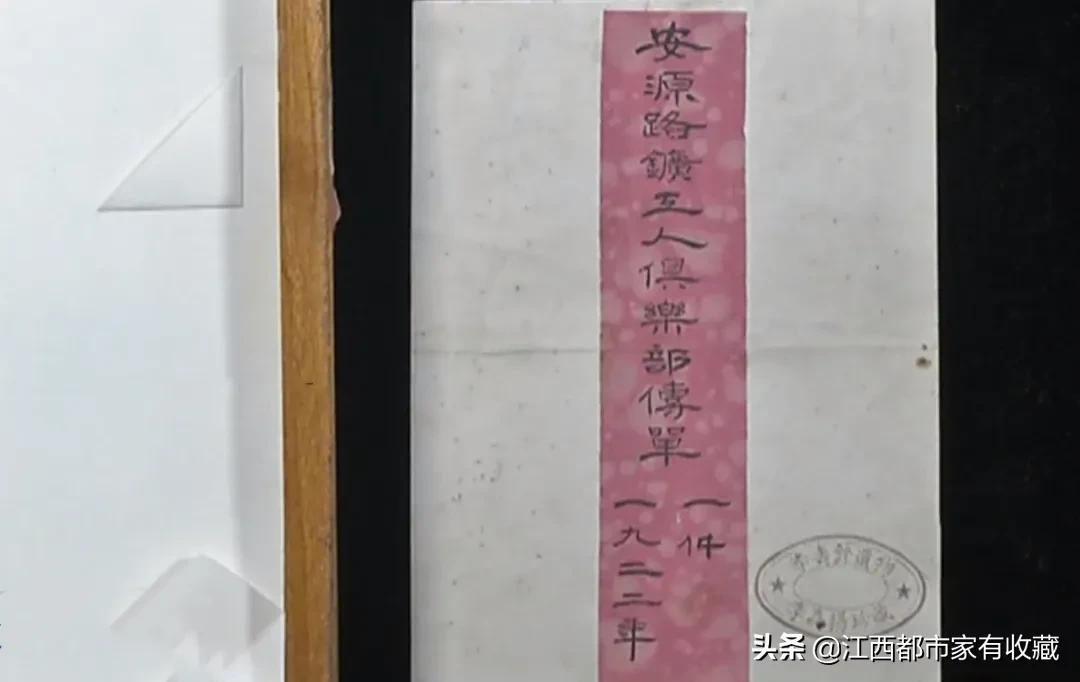 安源路鑛工人俱樂部傳單
一件
一九二二年
头条 @江西都市家有收藏